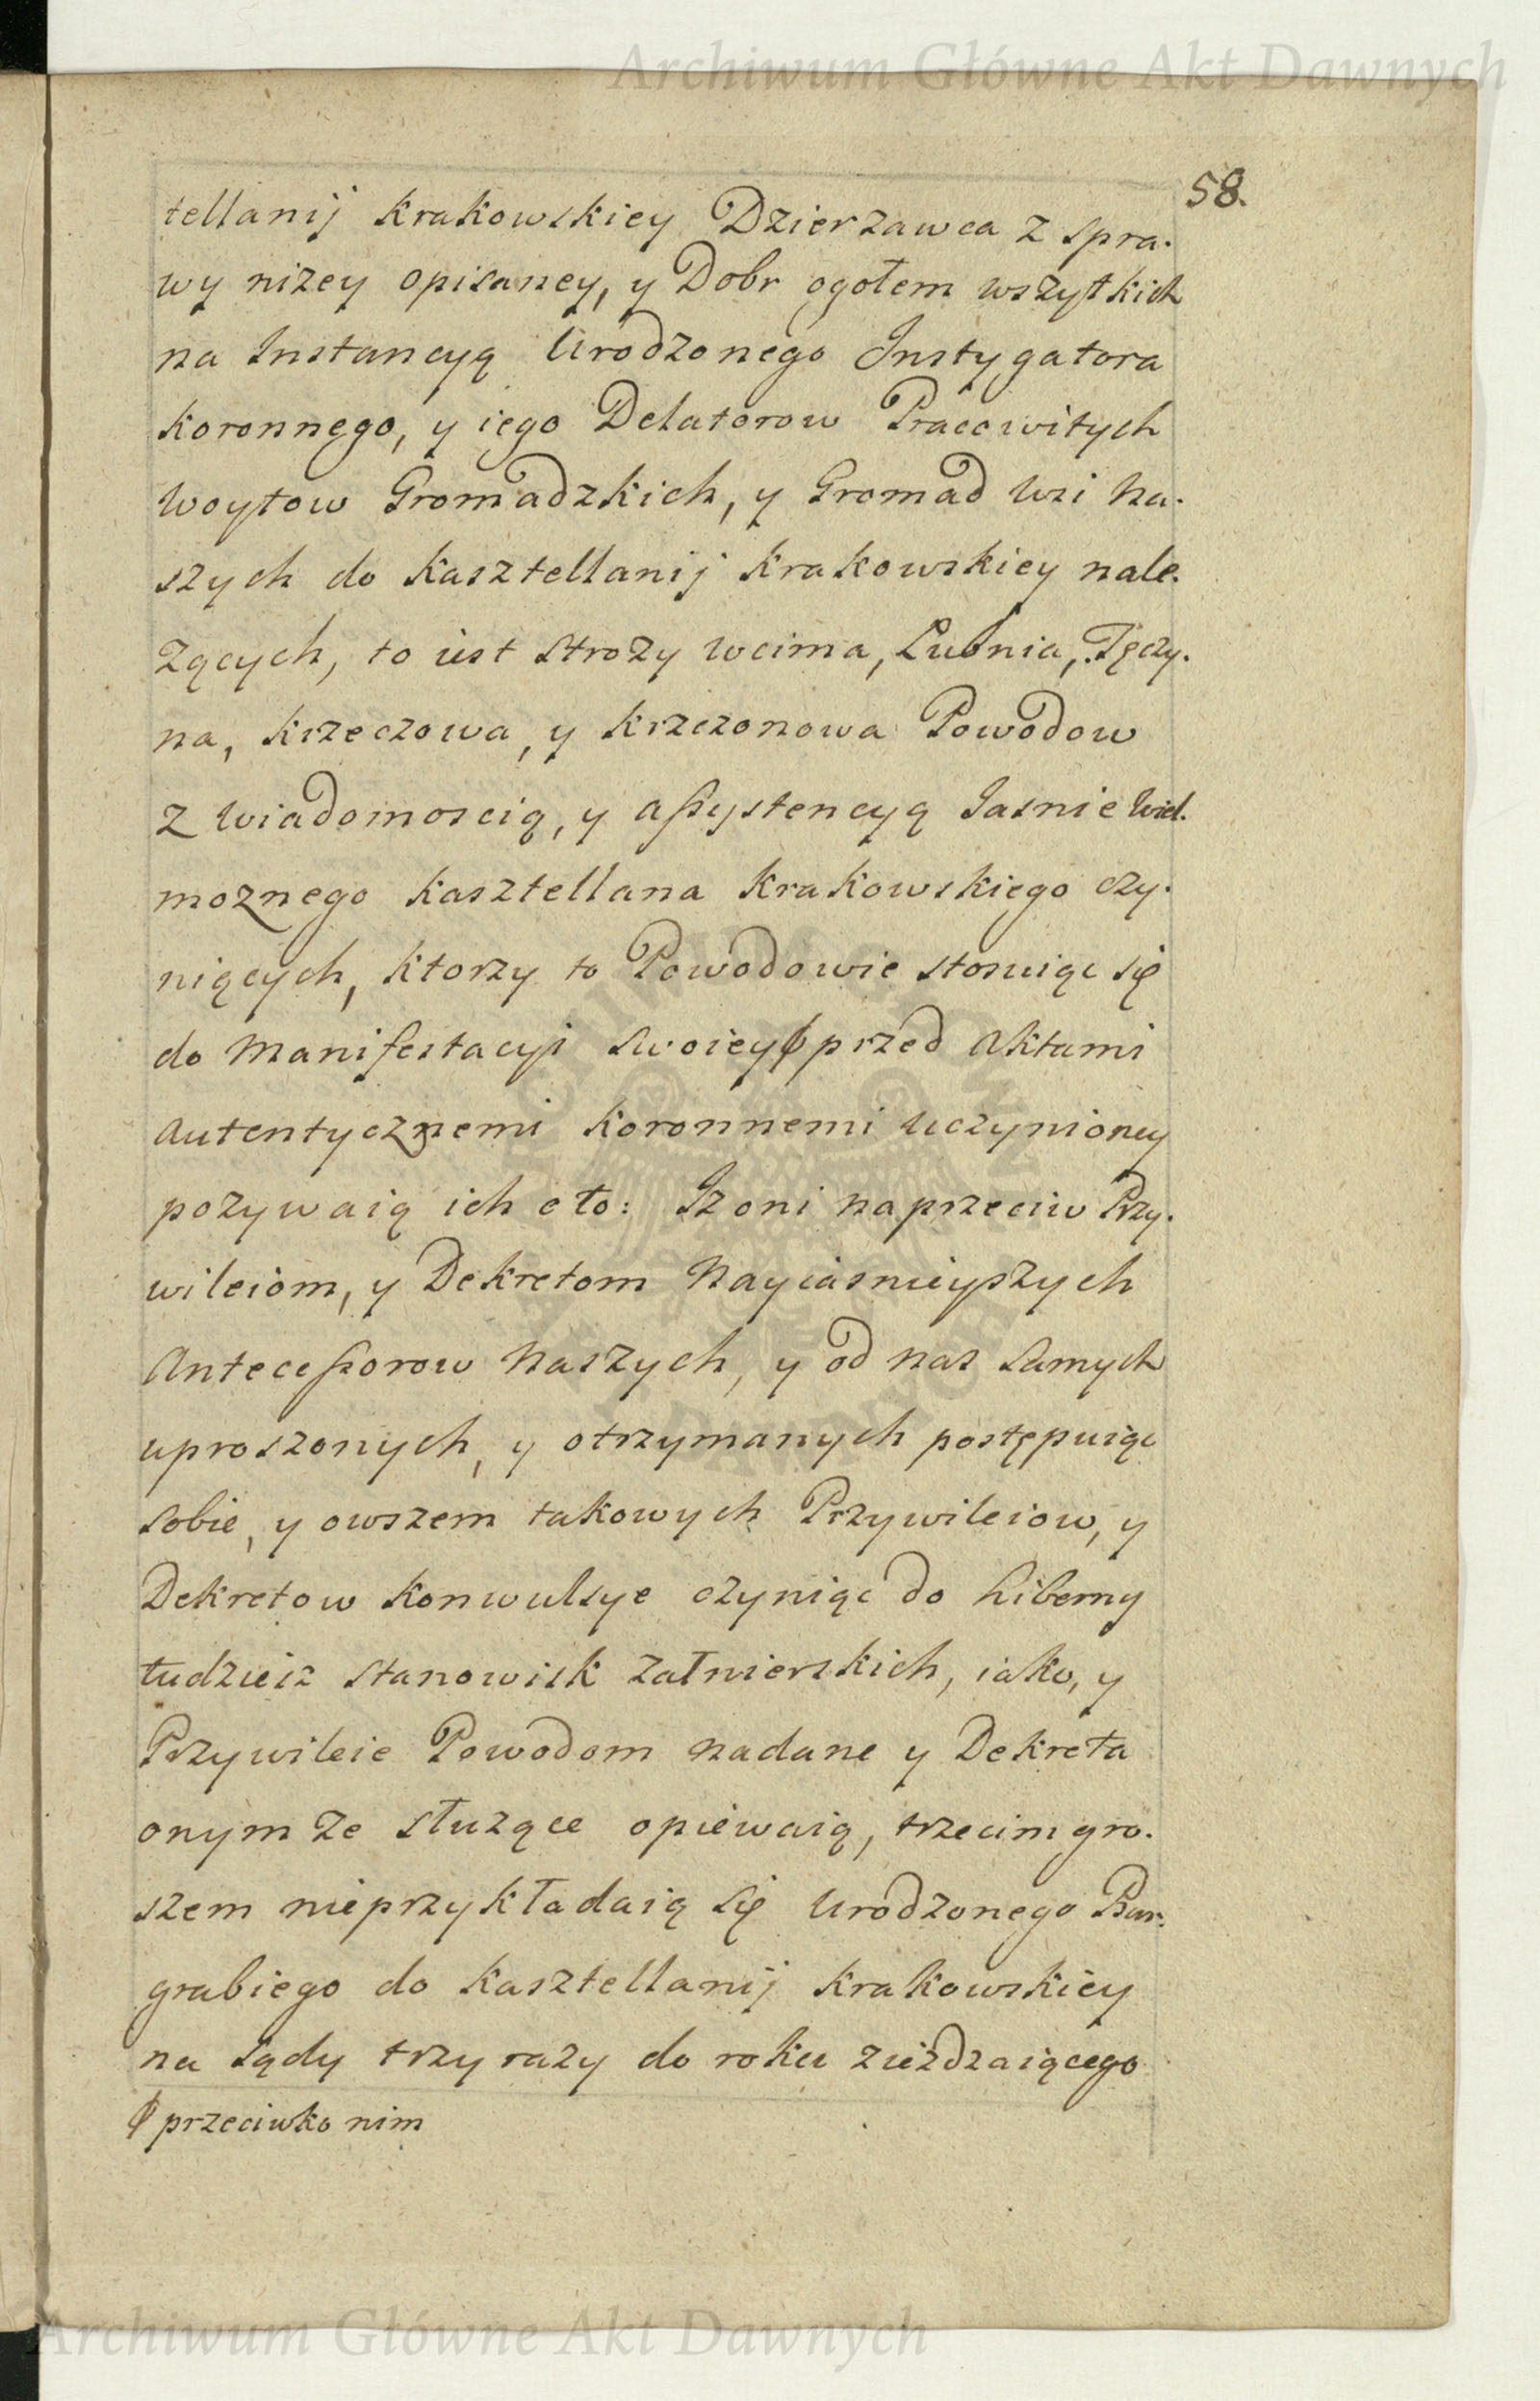 Archiwum Główne Akt Dawnych
58.
tellanij Krakowskiey Dzierzawca z spra.
wy nizey opisaney, y Dobr ogołem wszytkich
na Instancyą Urodzonego Instygatora
koronnego, y iego Delatorow Pracowitych
Woytow Gromadzkich, y Gromad Wsi Na.
szych do Kasztellanij Krakowskiey nale.
zących, to iest Strozy Wcima, Lubnia, Tęczy.
na, Krzeczowa, y Krzczonowa Powodow
z Wiadomoscią, y assystencyą Jasnie Wiel.
moznego Kasztellana Krakowskiego czy.
niących, ktorzy to Powodowie stosuiąc się
do Manifestacyi swoiey φ przed Aktami
Autentycznemi Koronnemi uczynioney
pozywaią ich o to: Iz oni naprzeciw Przy.
wileiom, y Dekretom Nayiasnieyszych
Antecessorow Naszych, y od nas samych
uproszonych, y otrzymanych postępuiąc
sobie, y owszem takowych Przywileiow, y
Dekretow Konwulsye czyniąc do hiberny
tudziesz stanowisk załnierskich, iako, y
Przywileie Powodom nadane y Dekreta
onym ze słuzące opiewaią, trzecim gro.
szem nieprzykładaią się Urodzonego Bur.
grabiego do Kasztellanij Krakowskiey
na sądy trzy razy do roku ziezdzaiącego
φ przeciwko nim
Archiwum Główne Akt Dawnych